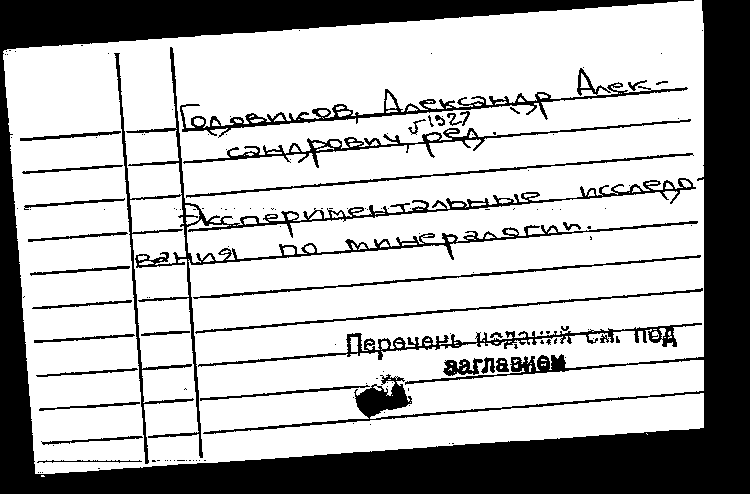 Годовиков, Александр Алек-
сандрович, 1927
ред.
Экспериментальные исследо-
вания по минералогии.
Перечень изданий см. под
заглавием